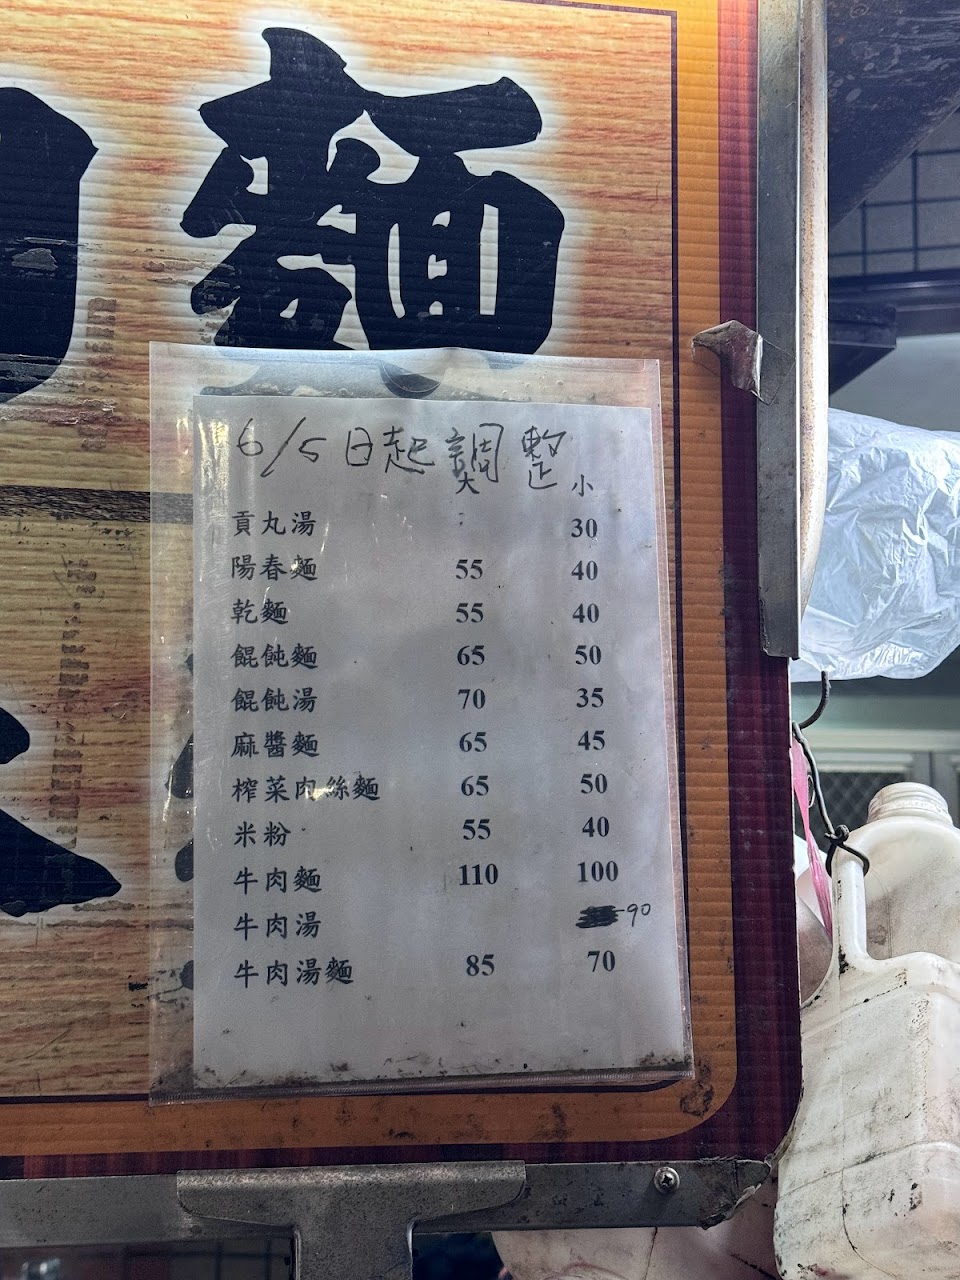 麵
6/5日起調整
大 小
貢丸湯 30
陽春麵 55 40
乾麵 55 40
餛飩麵 65 50
餛飩湯 70 35
麻醬麵 65 45
榨菜肉絲麵 65 50
米粉 55 40
牛肉麵 110 100
牛肉湯 90
牛肉湯麵 85 70